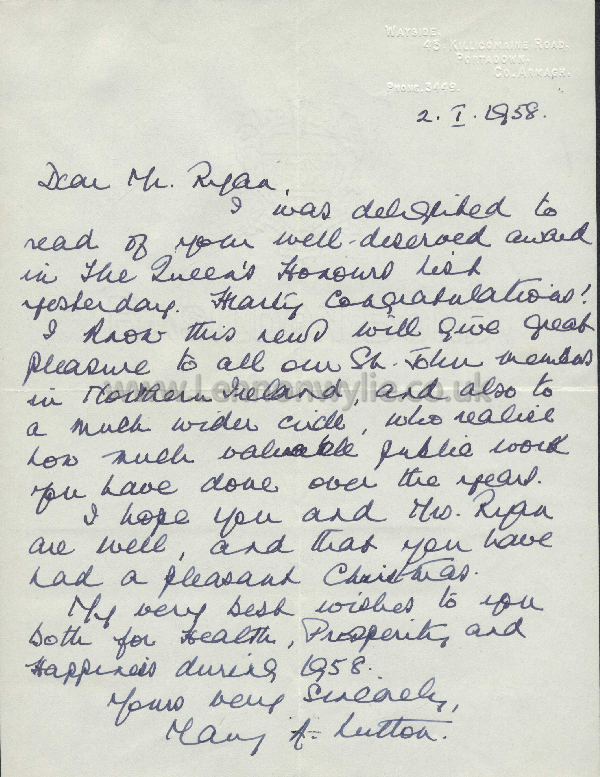 WAYSIDE,
43, KILLICOMAINE ROAD,
PORTADOWN,
CO. ARMAGH.
PHONE. 3449.
2. I. 1958.
Dear Mr. Ryan,
I was delighted to
read of your well-deserved award
in The Queen's Honours List
yesterday. Hearty Congratulations!
I know this news will give great
pleasure to all our St. John members
in Northern Ireland, and also to
www.Lennonwylie.co.uk
a much wider circle, who realise
how much valuable public work
you have done over the years.
I hope you and Mrs. Ryan
are well, and that you have
had a pleasant Christmas.
My very best wishes to you
both for Health, Prosperity and
Happiness during 1958.
Yours very Sincerely,
Mary A. Lutton.